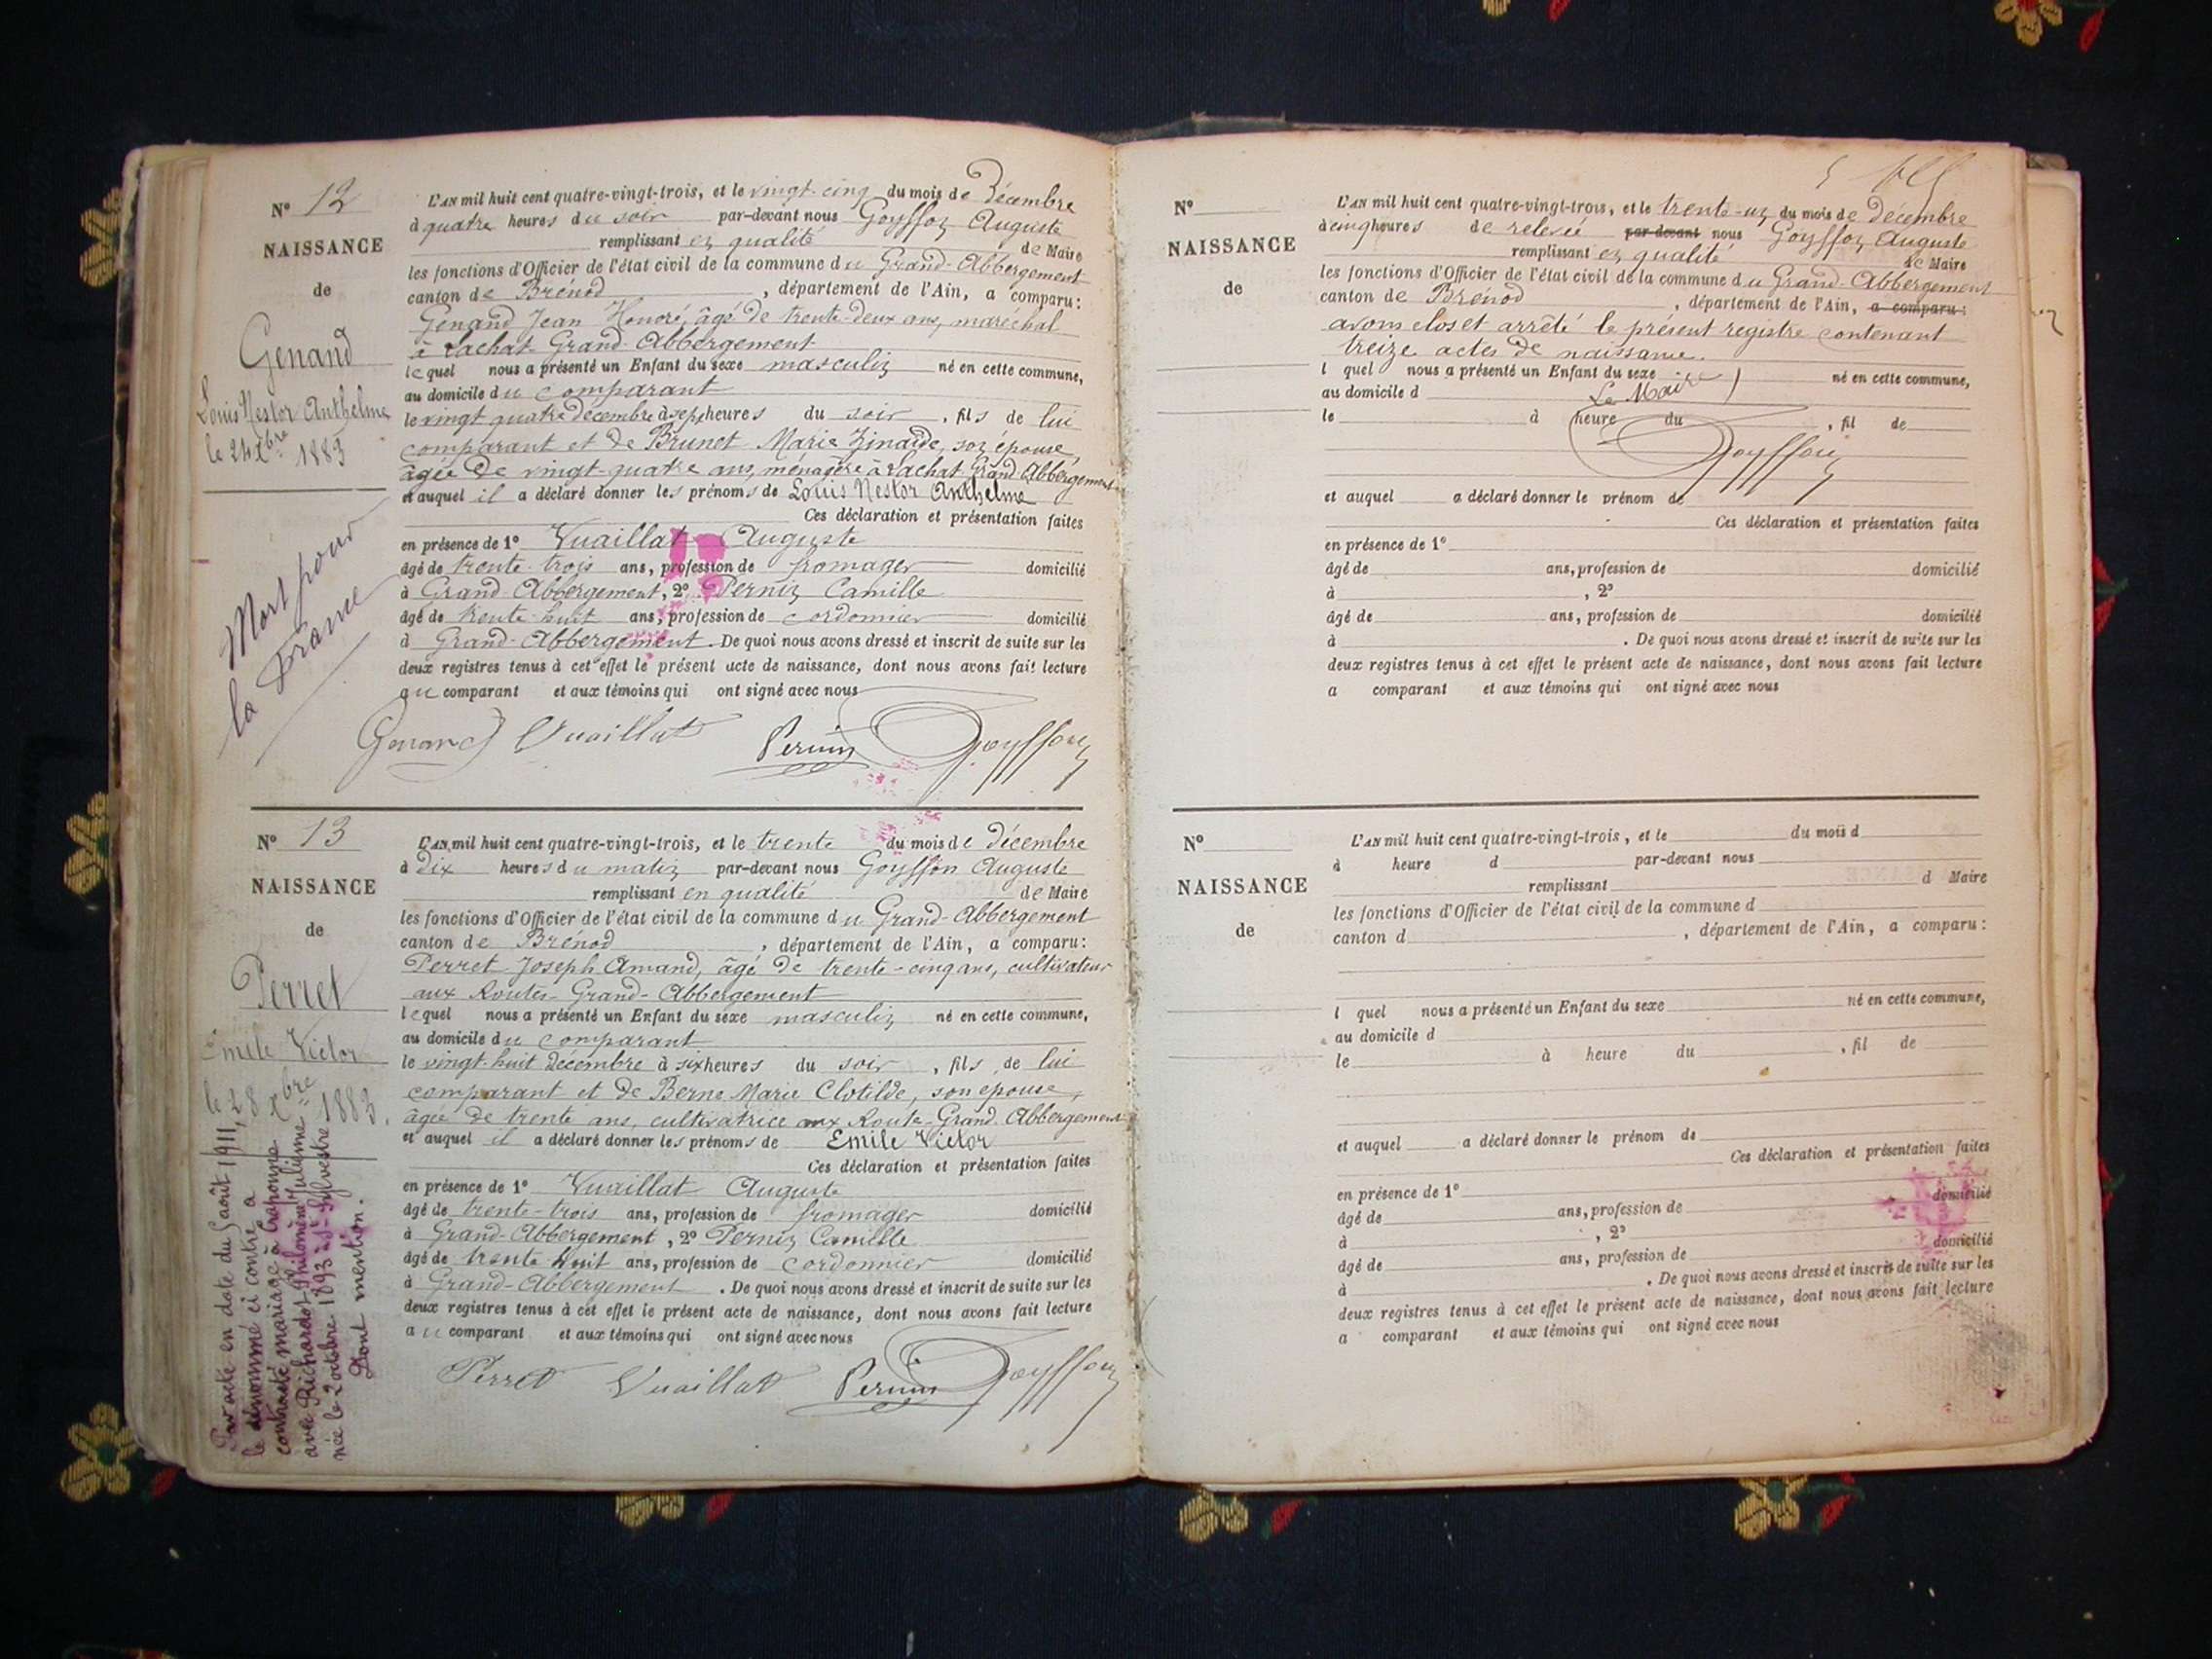 N° 12
NAISSANCE
de
Genand
Louis Nestor Anthelme
le 24 Xbre 1883
Mort pour
la France
L'AN mil huit cent quatre-vingt-trois, et le vingt-cinq du mois de Décembre
à quatre heures du soir par-devant nous Goyffon Auguste
remplissant en qualité de Maire
les fonctions d'Officier de l'état civil de la commune du Grand-Abbergement
canton de Brénod, département de l'Ain, a comparu:
Genand Jean Honoré, âgé de trente-deux ans, maréchal
à Lachat Grand-Abbergement
lequel nous a présenté un Enfant du sexe masculin né en cette commune,
au domicile du comparant
le vingt quatre décembre à sept heures du soir, fils de lui
comparant et de Brunet Marie Zinaïde, son épouse,
âgée de vingt-quatre ans, ménagère à Lachat Grand Abbergement
et auquel il a déclaré donner les prénoms de Louis Nestor Anthelme
Ces déclaration et présentation faites
en présence de 1° Vuaillat Auguste
âgé de trente-trois ans, profession de fromager domicilié
à Grand-Abbergement, 2° Pernin Camille
âgé de trente huit ans, profession de cordonnier domicilié
à Grand-Abbergement. De quoi nous avons dressé et inscrit de suite sur les
deux registres tenus à cet effet le présent acte de naissance, dont nous avons fait lecture
au comparant et aux témoins qui ont signé avec nous
Genand Vuaillat Pernin Goyffon
N° 13
NAISSANCE
de
Perret
Emile Victor
le 28 Xbre 1883.
Par acte en date du 5 août 1911,
le dénommé ci contre a
contracté mariage à Craponne
avec Richardot Philomène Julienne
née le 2 octobre 1893 à St Sylvestre
Dont mention.
L'AN mil huit cent quatre-vingt-trois, et le trente du mois de décembre
à dix heures du matin par-devant nous Goyffon Auguste
remplissant en qualité de Maire
les fonctions d'Officier de l'état civil de la commune du Grand-Abbergement
canton de Brénod, département de l'Ain, a comparu:
Perret Joseph Amand, âgé de trente-cinq ans, cultivateur
aux Routes-Grand-Abbergement
lequel nous a présenté un Enfant du sexe masculin né en cette commune,
au domicile du comparant
le vingt-huit décembre à six heures du soir, fils de lui
comparant et de Berne Marie Clotilde, son épouse,
âgée de trente ans, cultivatrice aux Route-Grand-Abbergement
et auquel il a déclaré donner les prénoms de Emile Victor
Ces déclaration et présentation faites
en présence de 1° Vuaillat Auguste
âgé de trente-trois ans, profession de fromager domicilié
à Grand-Abbergement, 2° Pernin Camille
âgé de trente huit ans, profession de cordonnier domicilié
à Grand-Abbergement. De quoi nous avons dressé et inscrit de suite sur les
deux registres tenus à cet effet le présent acte de naissance, dont nous avons fait lecture
au comparant et aux témoins qui ont signé avec nous
Perret Vuaillat Pernin Goyffon
N°
NAISSANCE
de
L'AN mil huit cent quatre-vingt-trois, et le trente-un du mois de décembre
à cinq heures de relevée par-devant nous Goyffon Auguste
remplissant en qualité de Maire
les fonctions d'Officier de l'état civil de la commune du Grand-Abbergement
canton de Brénod, département de l'Ain, a comparu:
avons clos et arrêté le présent registre contenant
treize actes de naissance.
l quel nous a présenté un Enfant du sexe né en cette commune,
au domicile d Le Maire
le à heure du , fil de
Goyffon
et auquel a déclaré donner le prénom de
Ces déclaration et présentation faites
en présence de 1°
âgé de ans, profession de domicilié
à , 2°
âgé de ans, profession de domicilié
à . De quoi nous avons dressé et inscrit de suite sur les
deux registres tenus à cet effet le présent acte de naissance, dont nous avons fait lecture
a comparant et aux témoins qui ont signé avec nous
N°
NAISSANCE
de
L'AN mil huit cent quatre-vingt-trois, et le du mois d
à heure d par-devant nous
remplissant d Maire
les fonctions d'Officier de l'état civil de la commune d
canton d , département de l'Ain, a comparu:
l quel nous a présenté un Enfant du sexe né en cette commune,
au domicile d
le à heure du , fil de
et auquel a déclaré donner le prénom de
Ces déclaration et présentation faites
en présence de 1°
âgé de ans, profession de domicilié
à , 2°
âgé de ans, profession de domicilié
à . De quoi nous avons dressé et inscrit de suite sur les
deux registres tenus à cet effet le présent acte de naissance, dont nous avons fait lecture
a comparant et aux témoins qui ont signé avec nous